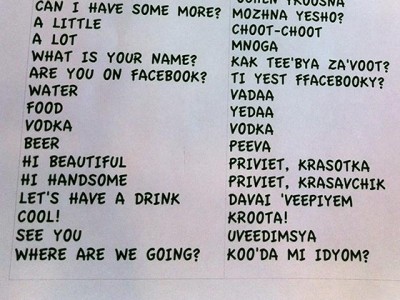 CAN I HAVE SOME MORE? MOZHNA YESHO?
A LITTLE CHOOT-CHOOT
A LOT MNOGA
WHAT IS YOUR NAME? KAK TEE'BYA ZA'VOOT?
ARE YOU ON FACEBOOK? TI YEST FFACEBOOKY?
WATER VADAA
FOOD YEDAA
VODKA VODKA
BEER PEEVA
HI BEAUTIFUL PRIVIET, KRASOTKA
HI HANDSOME PRIVIET, KRASAVCHIK
LET'S HAVE A DRINK DAVAI 'VEEPIYEM
COOL! KROOTA!
SEE YOU UVEEDIMSYA
WHERE ARE WE GOING? KOO'DA MI IDYOM?